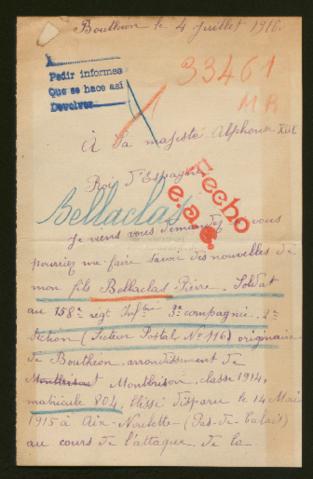 Bouthéon le 4 Juillet 1916.
Pedir informes
Que se hace así
Devolver
33461
M R
À Sa majesté Alphonse XIII
Roi d'Espagne
Fecho
e.a.g.
Bellaclas
Je viens vous demander si vous
pourriez me faire savoir des nouvelles de
mon fils Bellaclas Pierre. Soldat
au 158e régt Inftrie 3e compagnie, 2e
section (Secteur Postal No 116) originaire
de Bouthéon, arrondissement de
Montbrison Montbrison, classe 1914,
matricule 804, blessé disparu le 14 Mai
1915 à Aix-Noulette (Pas-de-Calais)
au cours de l'attaque de la